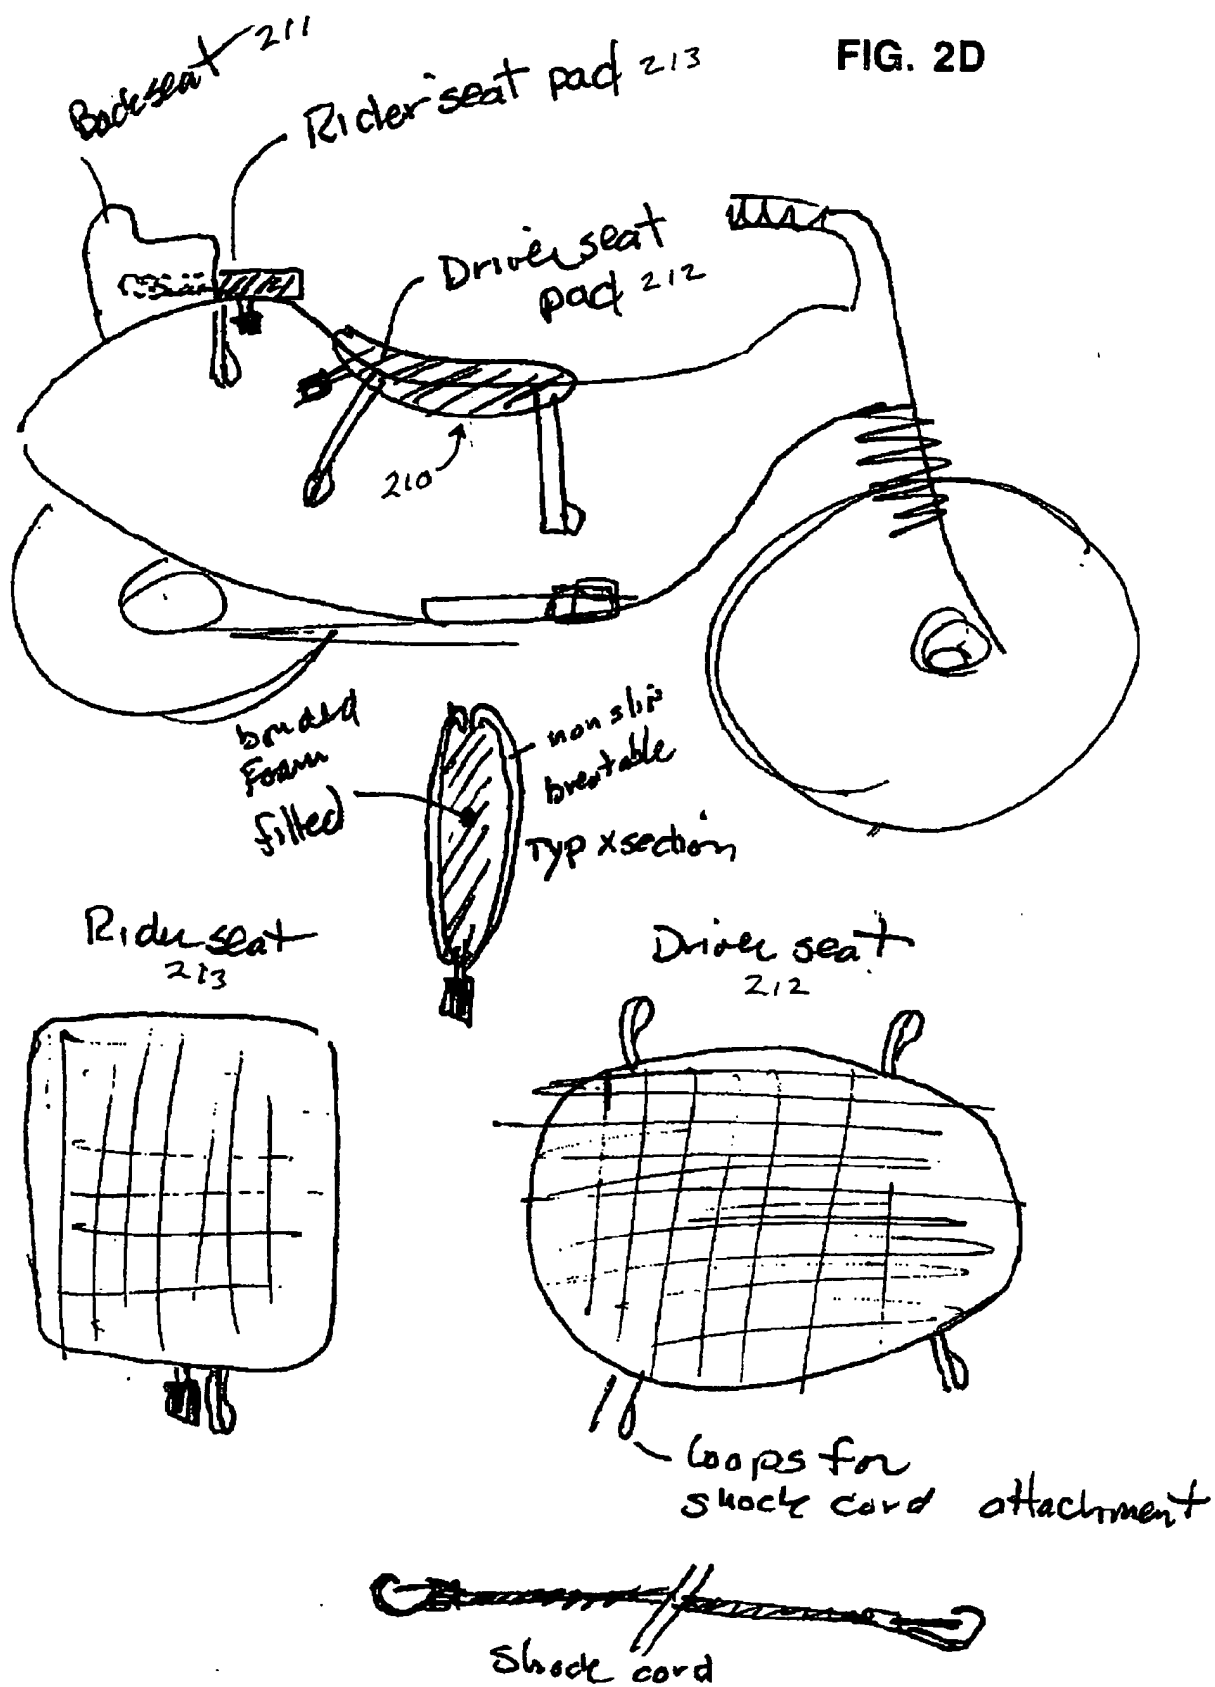 FIG. 2D
Backseat 211
Rider seat pad 213
Driver seat
pad 212
210
bonded
foam
filled
non slip
breatable
Typ x section
Rider seat
213
Driver seat
212
Loops for
shock cord attachment
Shock cord